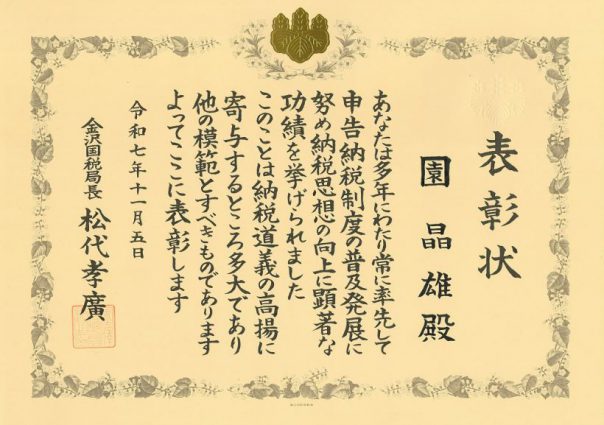 表彰状
園晶雄殿
あなたは多年にわたり常に率先して
申告納税制度の普及発展に
努め納税思想の向上に顕著な
功績を挙げられました
このことは納税道義の高揚に
寄与するところ多大であり
他の模範とすべきものであります
よってここに表彰します
令和七年十一月五日
金沢国税局長 松代孝廣